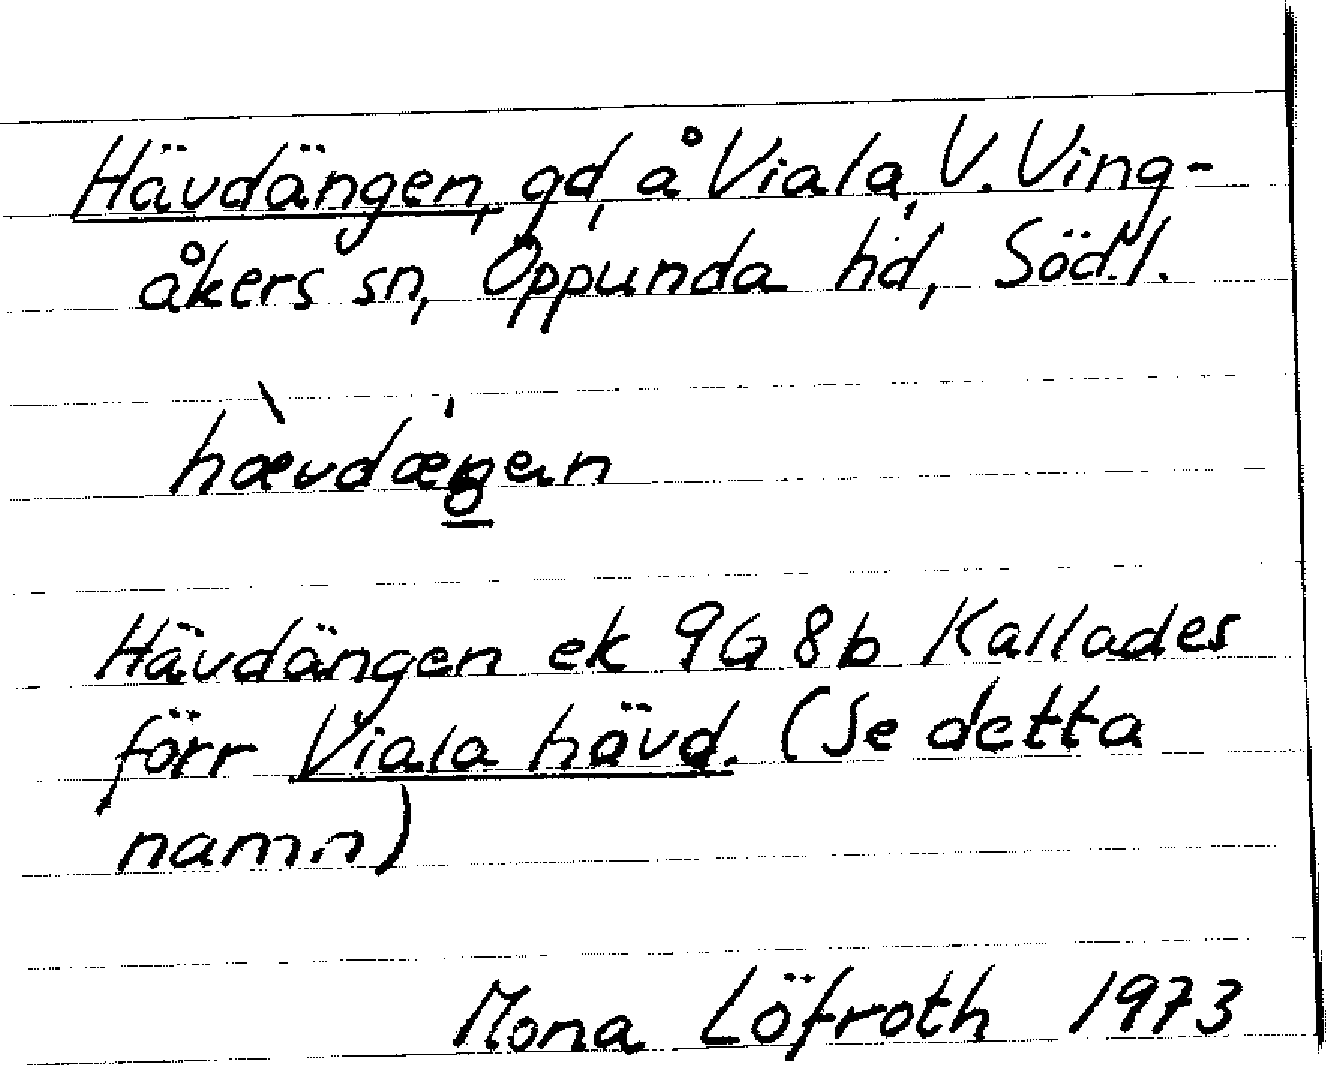 Hävdängen, gd, å Viala, V. Ving-
åkers sn, Oppunda hd, Södl.
hævdæŋen
Hävdängen ek 9G 8b Kallades
förr Viala hävd. (Se detta
namn)
Mona Löfroth 1973